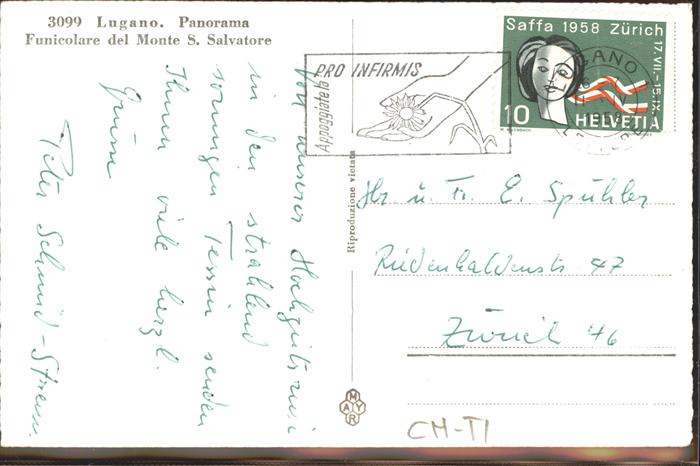 3099 Lugano. Panorama
Funicolare del Monte S. Salvatore
Von unserer Hochzeitsreise
in den strahlend
sonnigen Tessin senden
Ihnen viele herzl.
Grüsse
Peter Schmid-
Riproduzione vietata
MAYR
PRO INFIRMIS
Appoggiatela
LUGANO
Saffa 1958 Zürich
17.VII.-15.IX.
10
HELVETIA
Hr. u. Fr. E. Spühler
Riedenhaldenstr. 47
Zürich 46
CH-TI